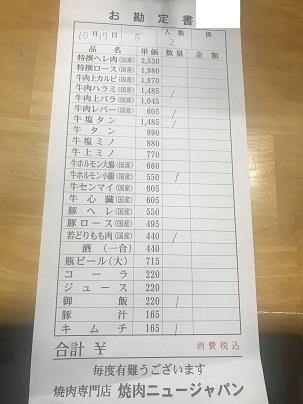 お勘定書
10月17日 5 人数 2 係
品名 単価 数量 金額
特撰ヘレ肉(国産) 2,530
特撰ロース(国産) 1,980
牛肉上カルビ(国産) 1,870
牛肉ハラミ(国産) 1,485 /
牛肉上バラ(国産) 1,045
牛肉レバー(国産) 605 /
牛塩タン 1,485 /
牛タン 990
牛塩ミノ 880
牛上ミノ 770
牛ホルモン大腸(国産) 660
牛ホルモン小腸(国産) 550 /
牛センマイ(国産) 605
牛心臓(国産) 605
豚ヘレ(国産) 550
豚ロース(国産) 495
若どりもも肉(国産) 440 /
酒(一合) 440
瓶ビール(大) 715
コーラ 220
ジュース 220
御飯 220 /
豚汁 165
キムチ 165 /
合計 ¥ 消費税込
毎度有難うございます
焼肉専門店 焼肉ニュージャパン